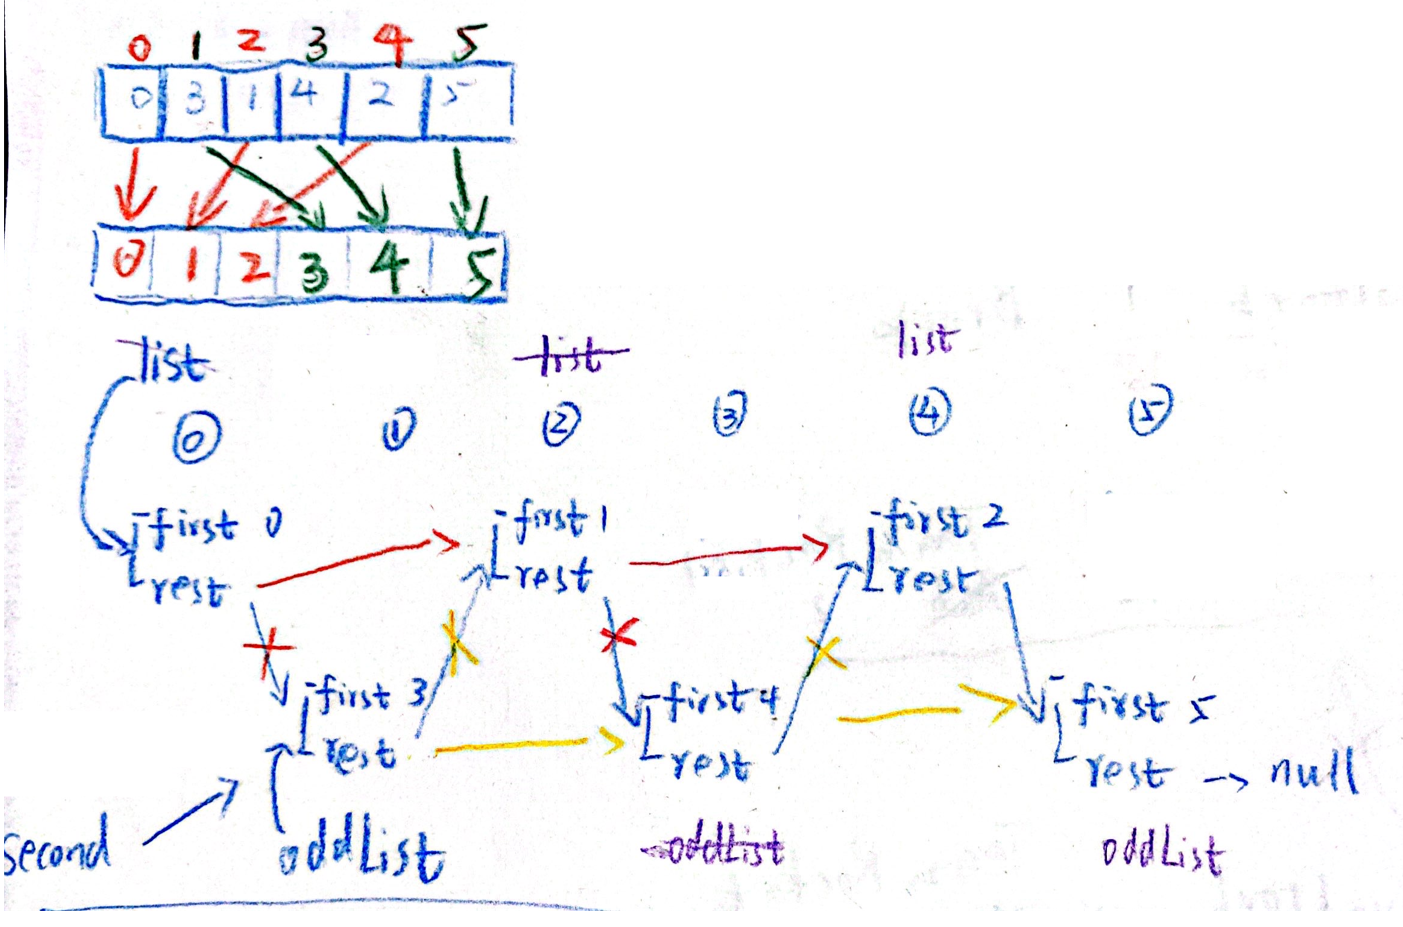 0 1 2 3 4 5
0 3 1 4 2 5
0 1 2 3 4 5
list list list
⓪ ① ② ③ ④ ⑤
first 0 first 1 first 2
rest rest rest
first 3 first 4 first 5
rest rest rest → null
second oddList oddList oddList